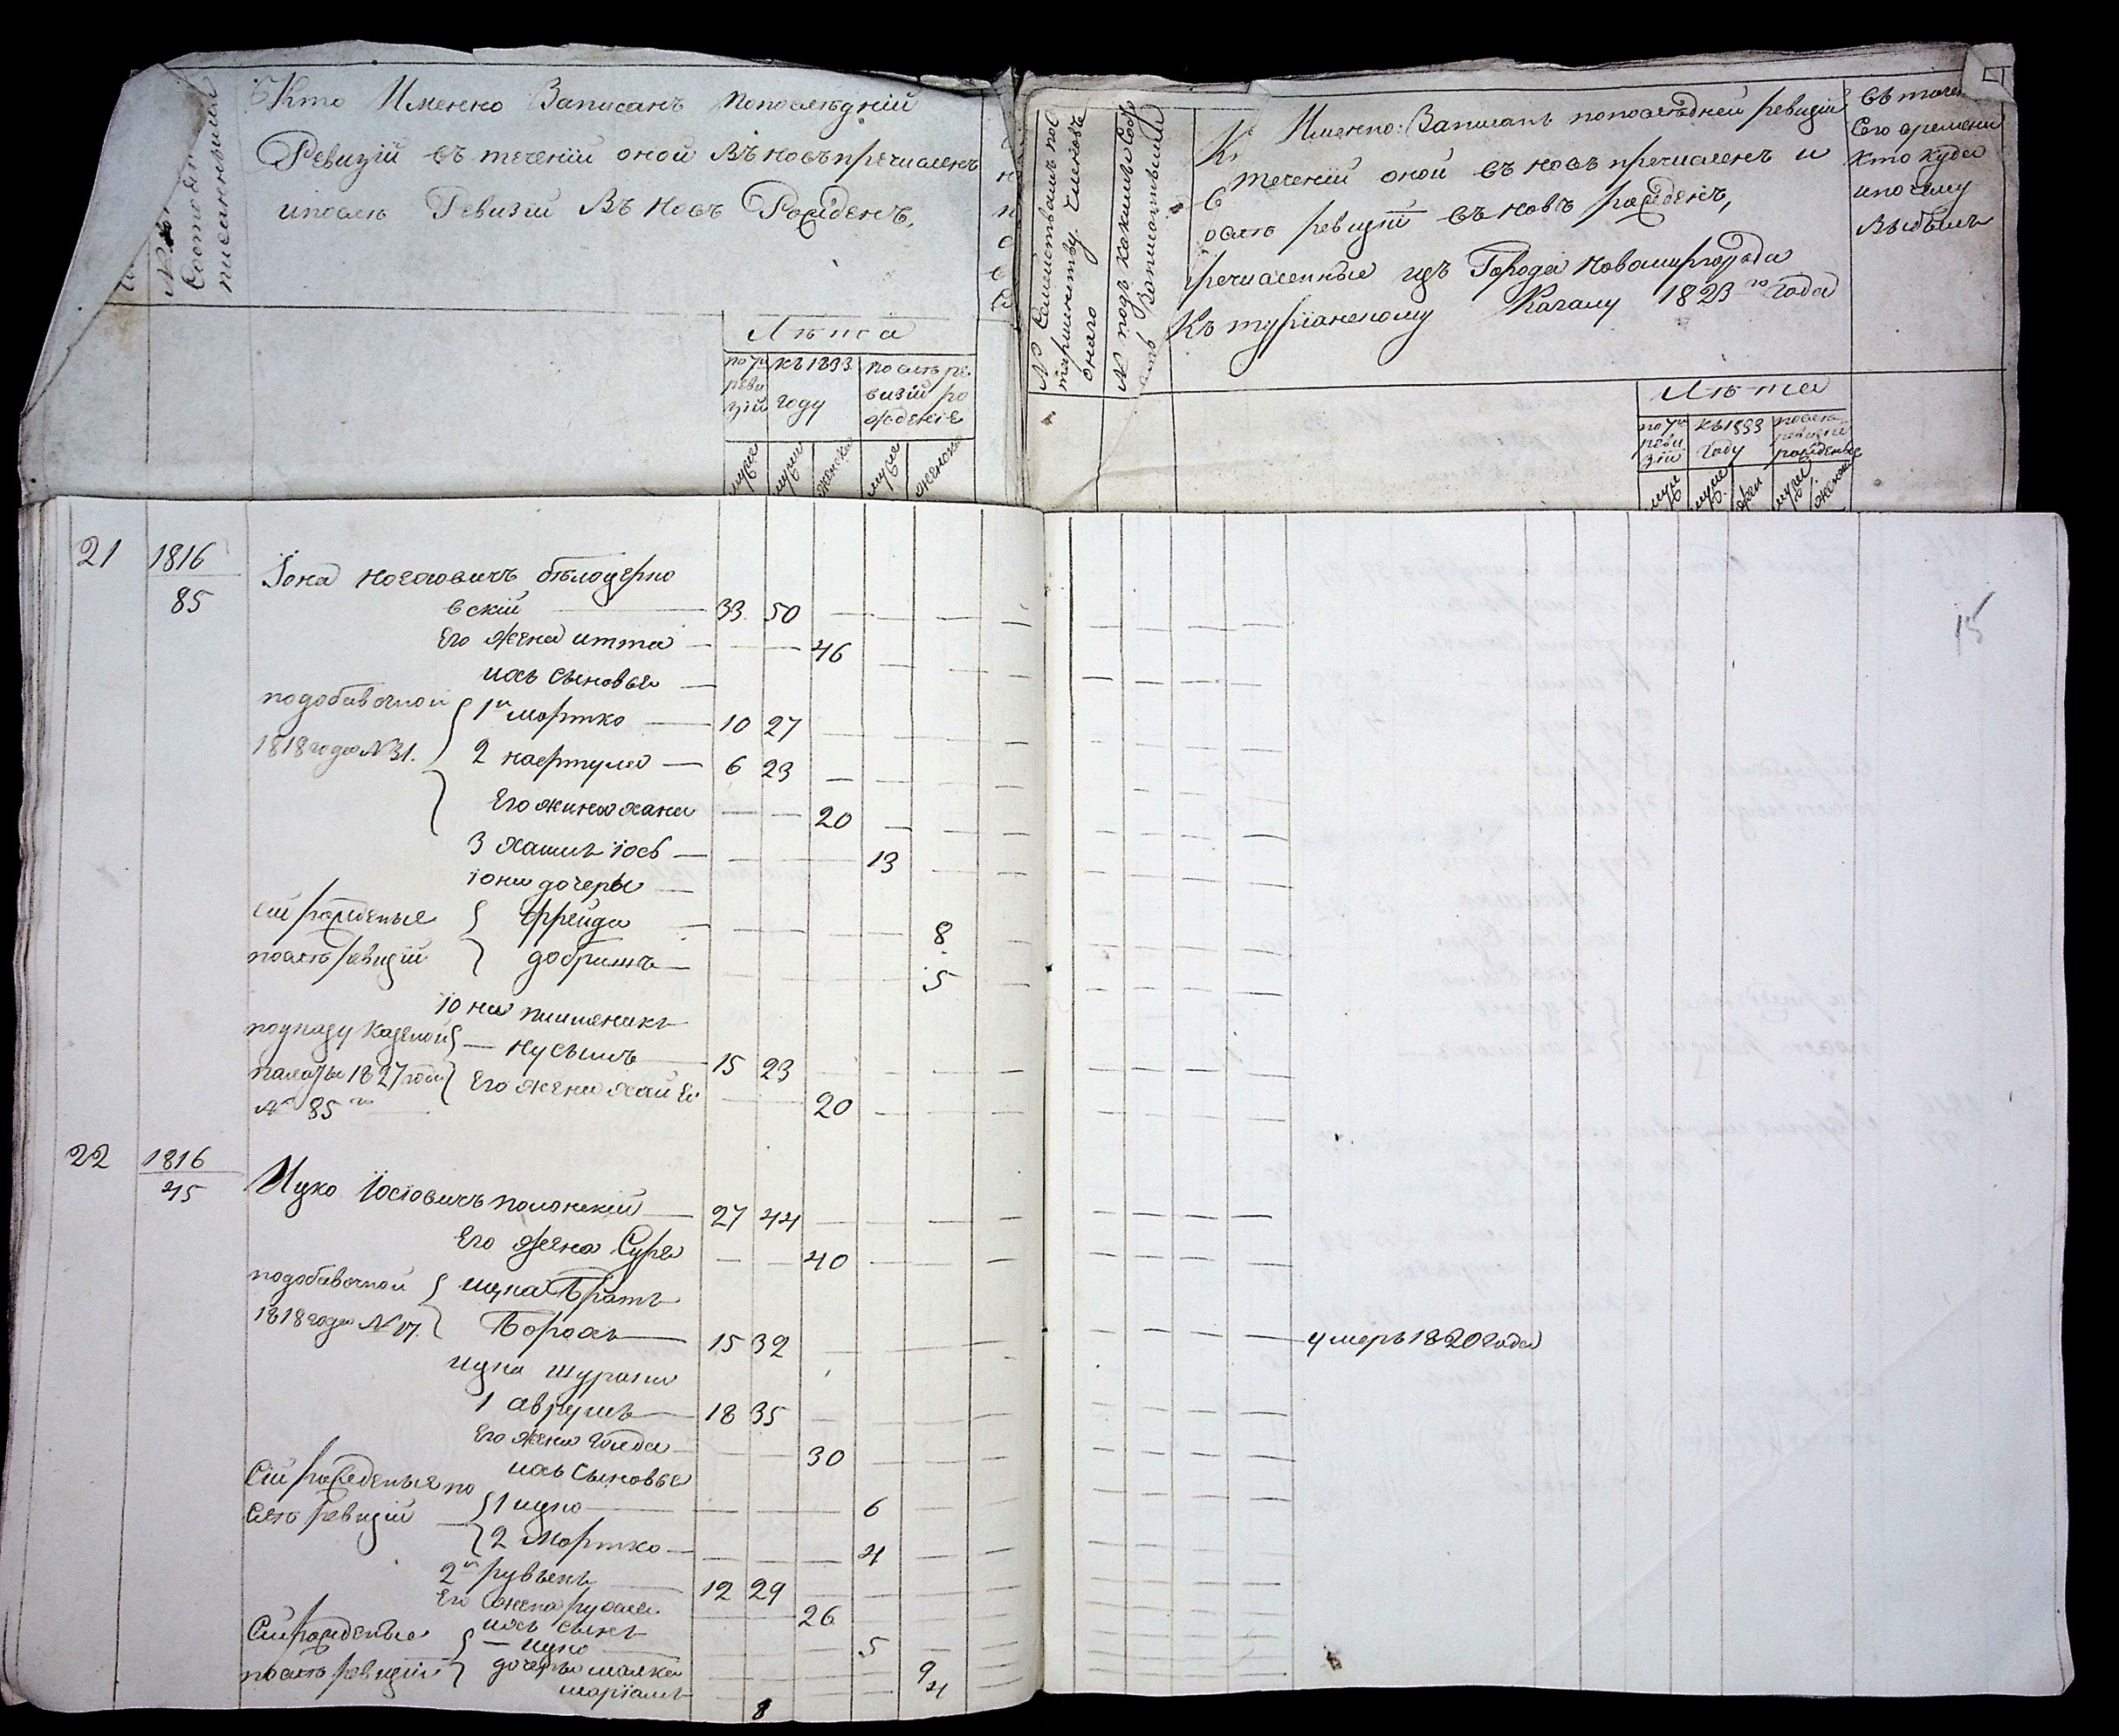 Кто Именно Записанъ попослѣдній
Ревизій въ теченіи оной Въ новъ пречисленъ
ипослѣ Ревизій Въ Новъ Рожденъ,
Лѣта
по 7й ревизій
къ 1833 году
послѣ ревизій рожденіе
мужес
мужес
женска
мужес
женска
№ Семействамъ
Именно: Записанъ попослѣдней ревизій
теченій оной въ новъ пречисленъ и
ослѣ ревизіи въ новъ рожденъ,
речисленные изъ Города Новамиргорода
Къ турїанскому Кагалу 1823го года
въ тече
сего времени
кто куда
ипочему
Выбылъ
Лѣта
по 7й ревизій
къ 1833 году
послѣ ревизіи рожденые
21
1816
85
Іона Носоовичъ бѣлоцерко
вскій 33 50
Его жена итта 46
ихъ сыновья
подобавочной
1818 года № 31.
1й мортко 10 27
2 нафтула 6 23
Его жина хана 20
3 хаимъ іось 13
іони дочеры
сій рожденые
послѣ ревизій
фрейда 8
добришъ 5
іони племеникъ
поуказу казеной
палаты 1827 года
№ 85го
нусымъ 15 23
Его жена хая 20
22
1816
45
Ицко Іосїовичъ полонскій 27 44
Его жена Сура 40
подобавочной
1818 года № 17.
ицка братъ
Борохъ 15 32
умеръ 1820 года
ицка шураки
1 аврумъ 18 35
Его жена голда 30
ихъ сыновья
Сій рожденые по
слѣ ревизій
1 ицко 6
2 Мортко 4
2й рувѣнъ 12 29
Его жена рухля 26
ихъ сынъ
Сій рожденые
послѣ ревизій
ицко 5
дочеры малка 9
марїамъ 4
8
15